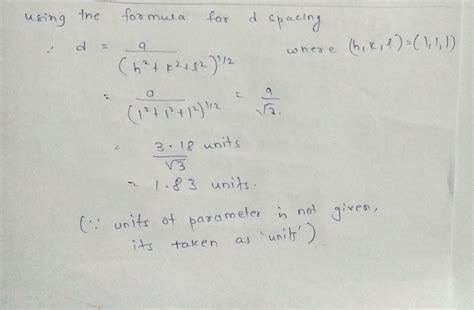 using the formula for d spacing
∴ d = a / (h² + k² + l²)^1/2 where (h, k, l) = (1, 1, 1)
= a / (1² + 1² + 1²)^1/2 = a / √3.
= 3.18 units / √3
= 1.83 units.
(∵ units of parameter is not given,
its taken as 'units')